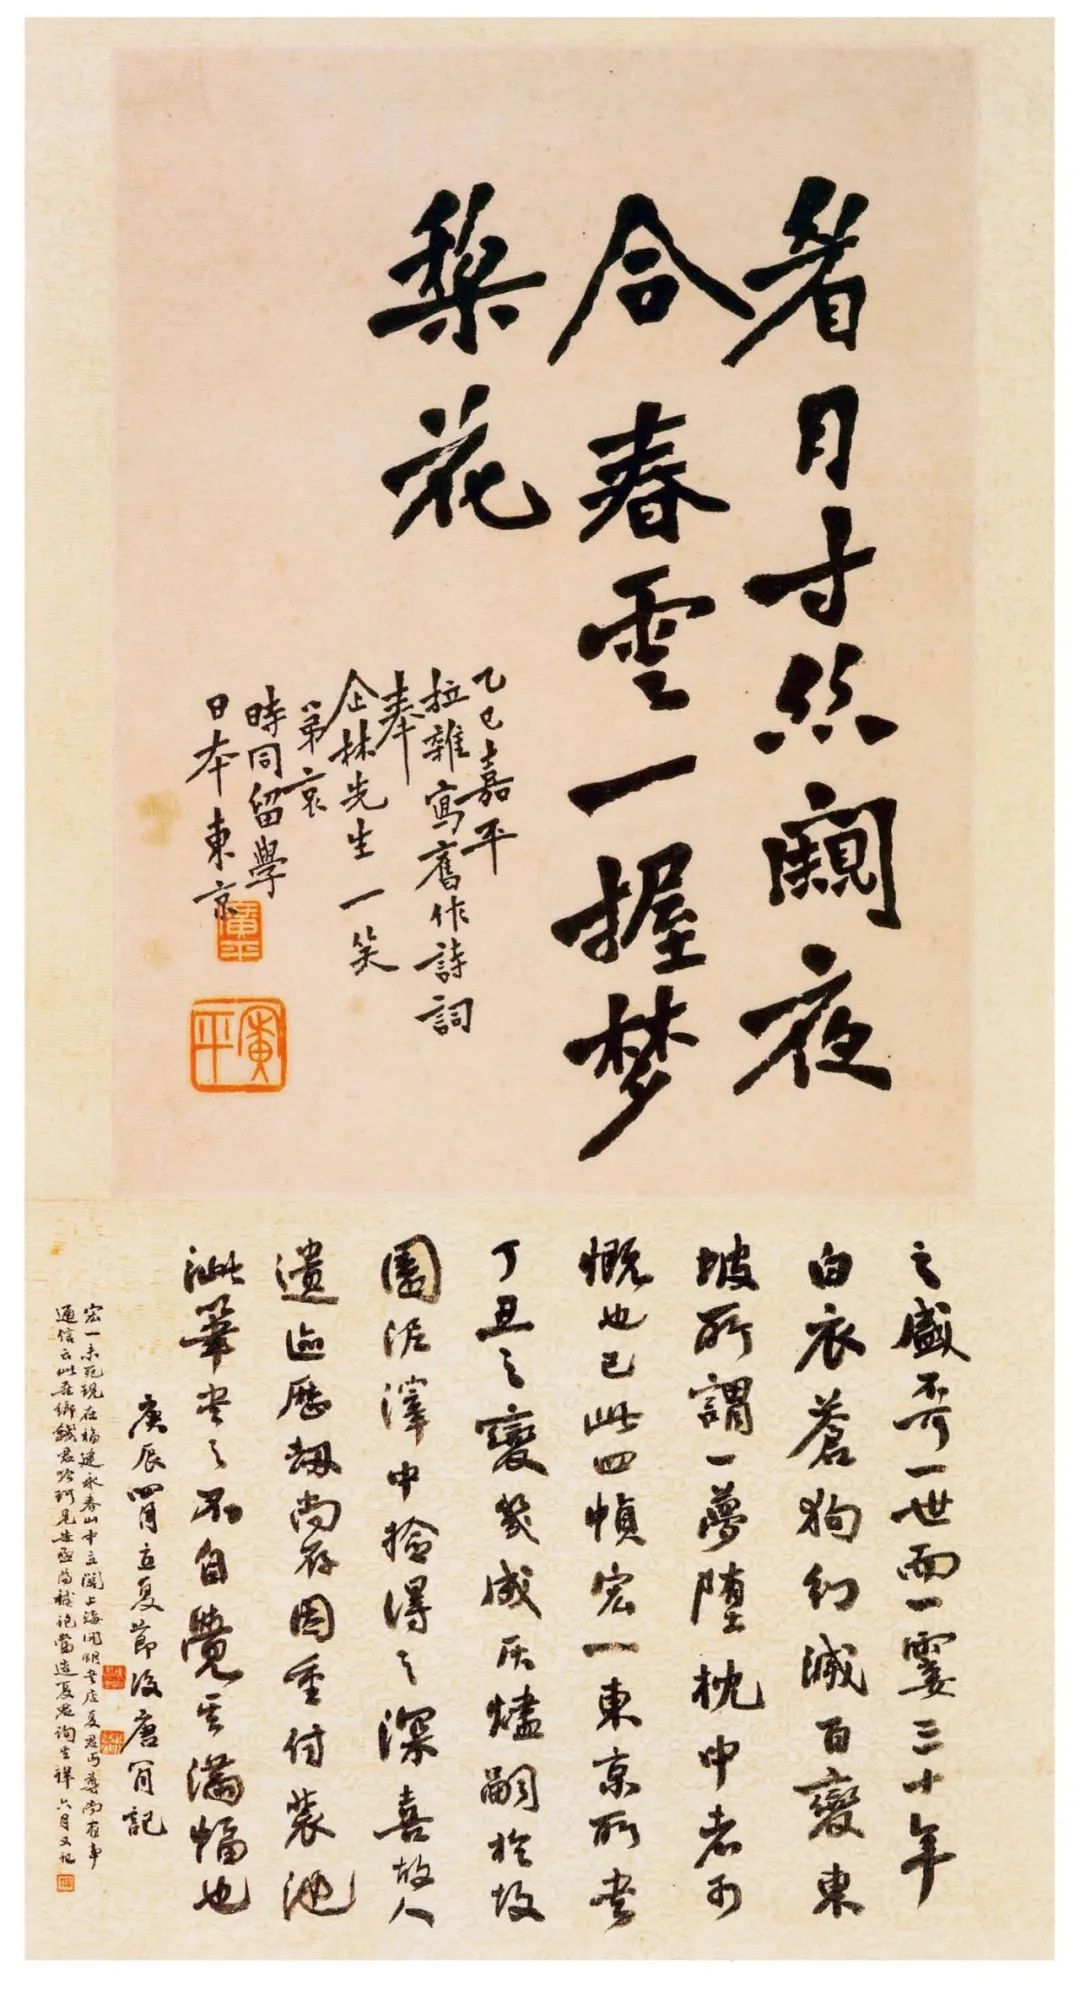 着月寸丝阙夜
合春雲一握梦
梨花
乙巳嘉平
拉雜寫舊作詩詞
奉
企林先生一笑
弟哀
時同留學
日本東京
廣平
廣平
之盛奇一世而一霎三十年
白衣蒼狗幻滅百變東
坡所謂一夢墮枕中者可
慨也已此四幀宏一東京所書
丁丑之變幾成灰燼嗣於故
園泥澤中撿得之深喜故人
遺迹歷劫尚存因重付裝池
泚筆書之不自覺其滿幅也
庚辰四月立夏節後唐肎記
宏一未死現在福建永春山中立關上海開明書店夏君丏尊尚有事
通信 六月又記